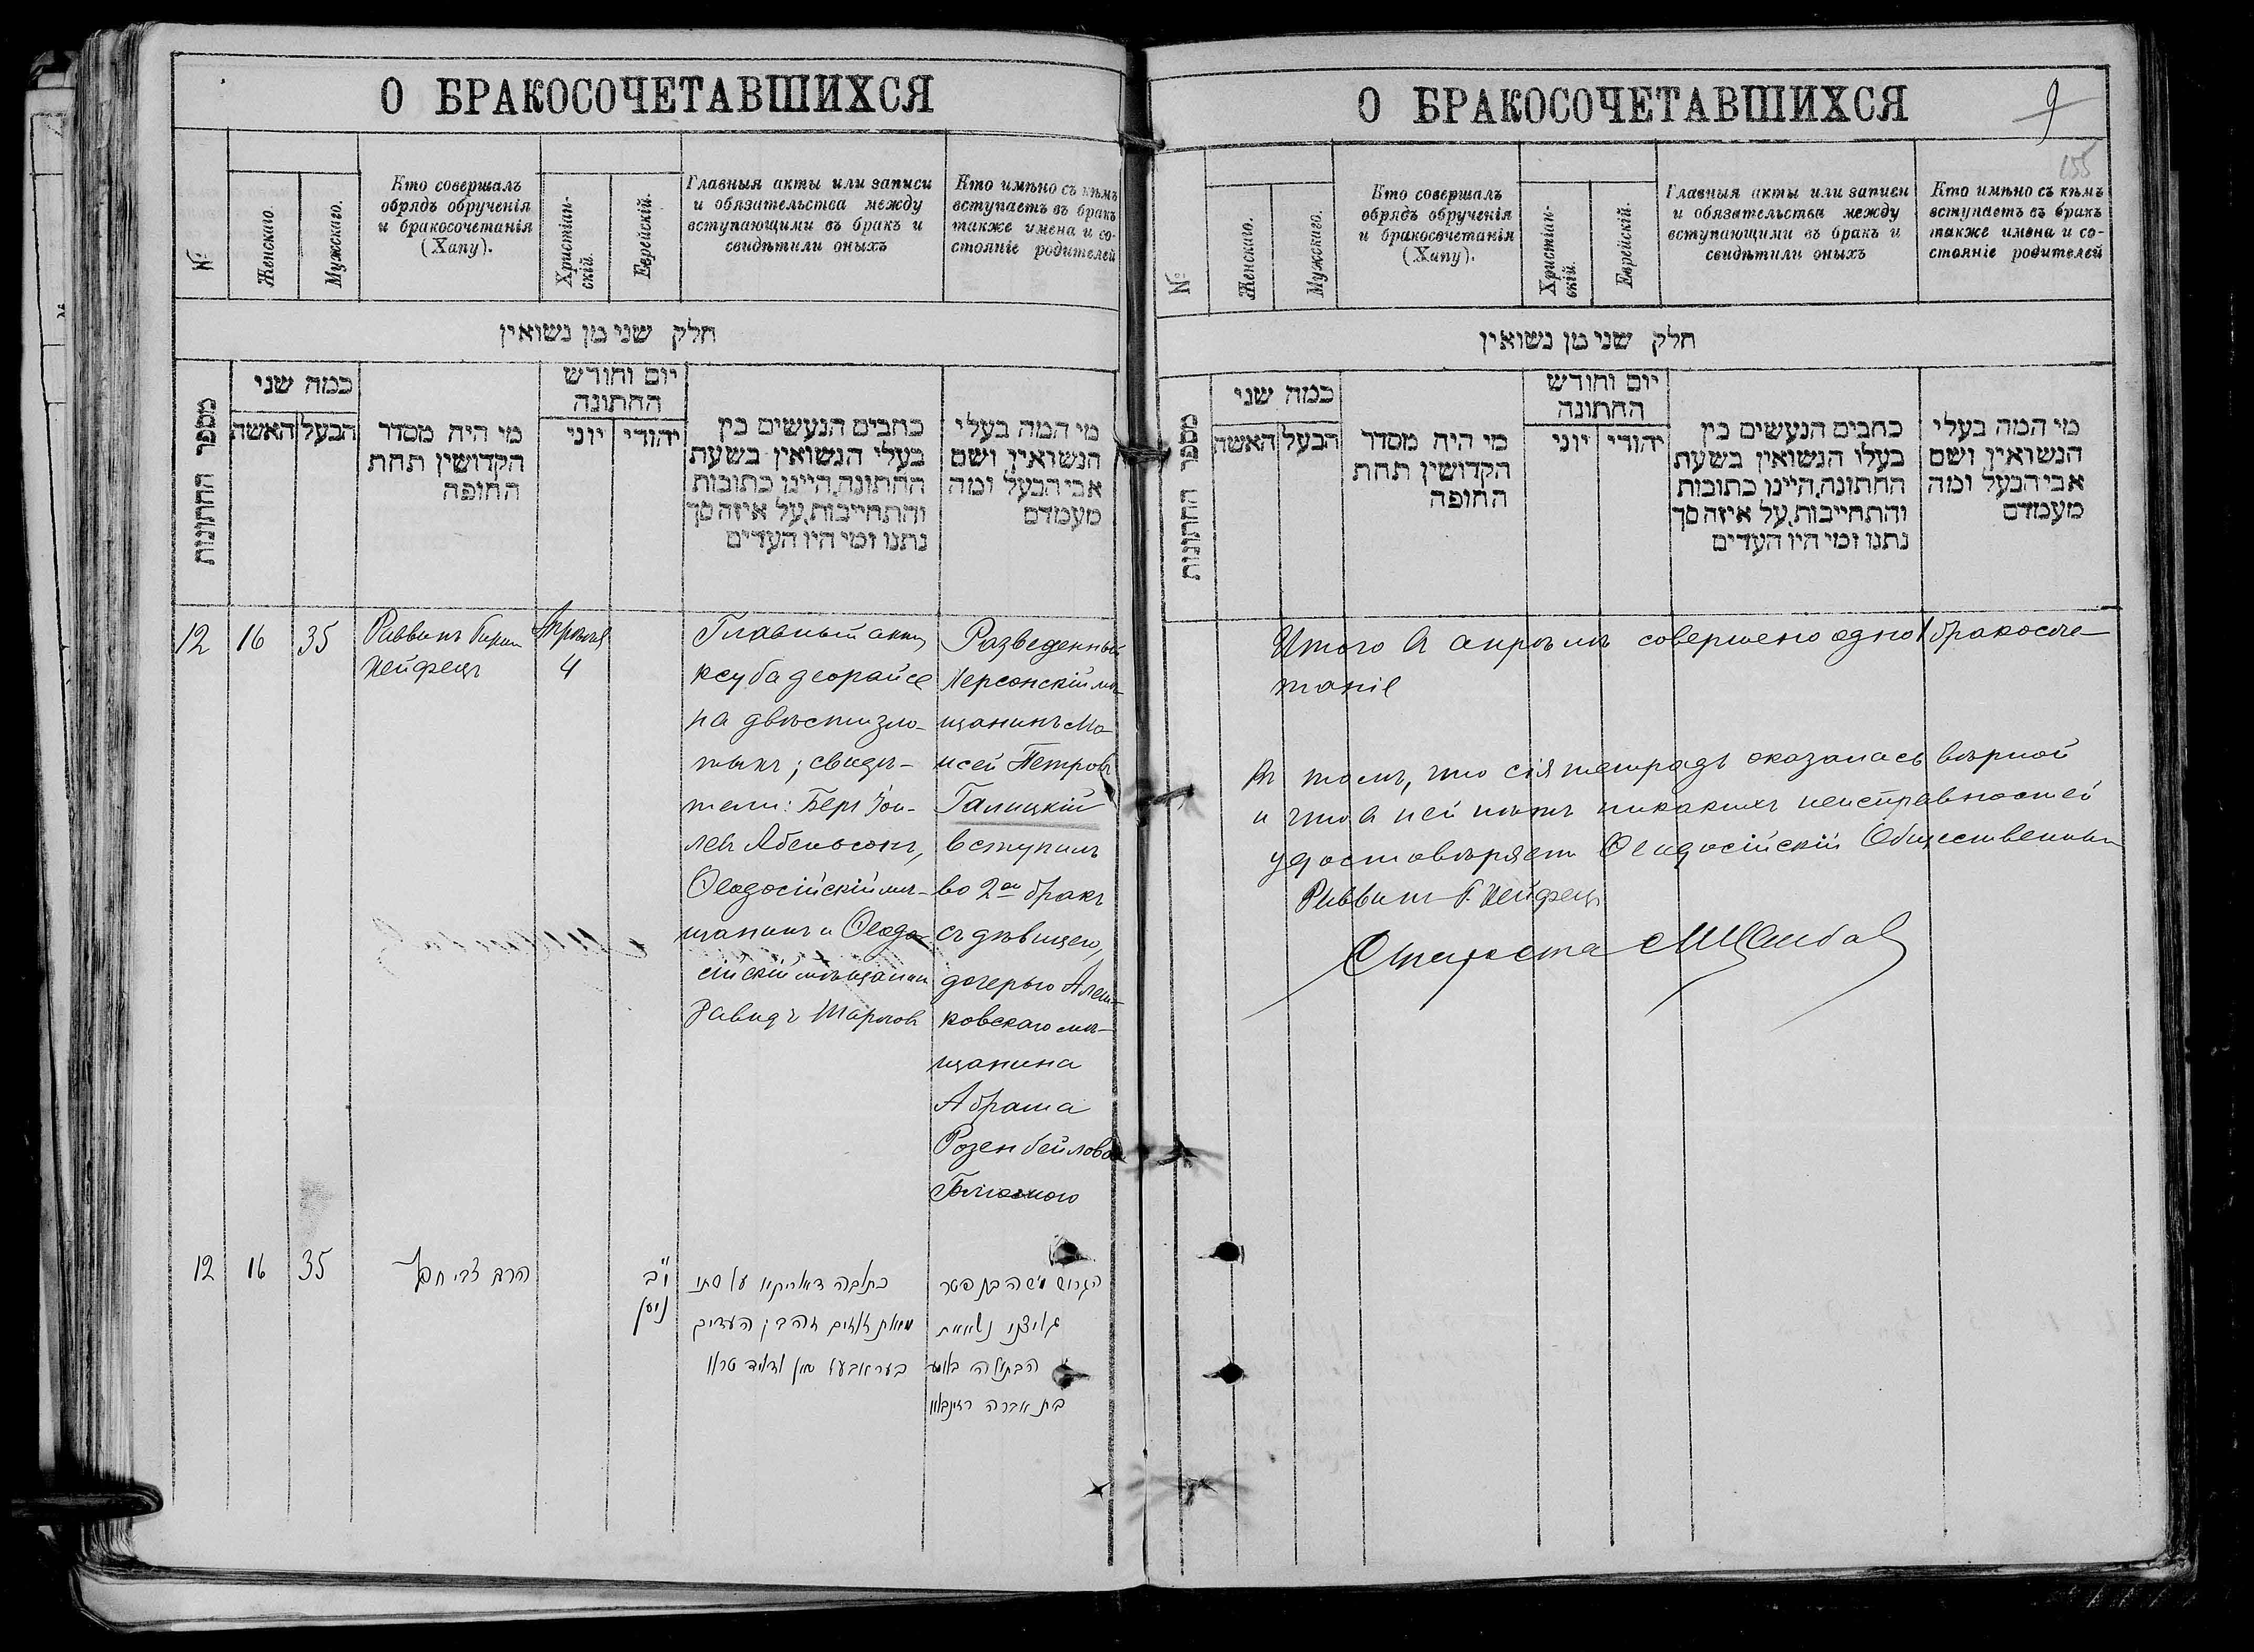 О БРАКОСОЧЕТАВШИХСЯ
№
Женскаго.
Мужскаго.
Кто совершалъ
обрядъ обрученія
и бракосочетанія
(Хапу).
Христіан-
скій.
Еврейскій.
Главныя акты или записи
и обязательства между
вступающими въ бракъ и
свидѣтили оныхъ
Кто имѣно съ кѣмъ
вступаетъ въ бракъ
также имена и со-
стояніе родителей
חלק שני מן נשואין
מספר החתונות
כמה שני
האשה
הבעל
מי היה מסדר
הקדושין תחת
החופה
יום וחודש
החתונה
יוני
יהודי
כתבים הנעשים בין
בעלי הנשואין בשעת
החתונה, היינו כתובות
והתחייבות, על איזה סך
נתנו ומי היו העדים
מי המה בעלי
הנשואין ושם
אבי הבעל ומה
מעמדם
12
16
35
Раввинъ
Хейфецъ
Апрѣля
4
Главный актъ
ксуба деорайсе
на двѣсти зло-
тыхъ; свидѣ-
тели: Беръ
левъ Абельсонъ,
Ѳеодосійскій мѣ-
щанинъ и Ѳеодо-
сійскій мѣщанин
Давидъ
Разведенный
Херсонскій мѣ-
щанинъ Мо-
исей Петровъ
Галицкій
вступилъ
во 2ой бракъ
съ дѣвицею,
дочерью Алеш-
ковскаго мѣ-
щанина
Абрама
12
16
35
הרב צבי חפץ
י"ב
ניסן
כתובה דאורייתא על סך
מאת זהובים העדים
הגרוש משה בן פטר
גליצקי נשא את
הבתולה
בת אברהם
О БРАКОСОЧЕТАВШИХСЯ
9
155
№
Женскаго.
Мужскаго.
Кто совершалъ
обрядъ обрученія
и бракосочетанія
(Хапу).
Христіан-
скій.
Еврейскій.
Главныя акты или записи
и обязательства между
вступающими въ бракъ и
свидѣтили оныхъ
Кто имѣно съ кѣмъ
вступаетъ въ бракъ
также имена и со-
стояніе родителей
חלק שני מן נשואין
מספר החתונות
כמה שני
האשה
הבעל
מי היה מסדר
הקדושין תחת
החופה
יום וחודש
החתונה
יוני
יהודי
כתבים הנעשים בין
בעלי הנשואין בשעת
החתונה, היינו כתובות
והתחייבות, על איזה סך
נתנו ומי היו העדים
מי המה בעלי
הנשואין ושם
אבי הבעל ומה
מעמדם
Итого въ апрѣлѣ совершено одно 1 бракосоче-
таніе
Въ томъ, что сія тетрадь оказалась вѣрной
и что въ ней нѣтъ никакихъ неисправностей
удостовѣряетъ Ѳеодосійскій Общественный
Раввинъ Б. Хейфецъ
Староста